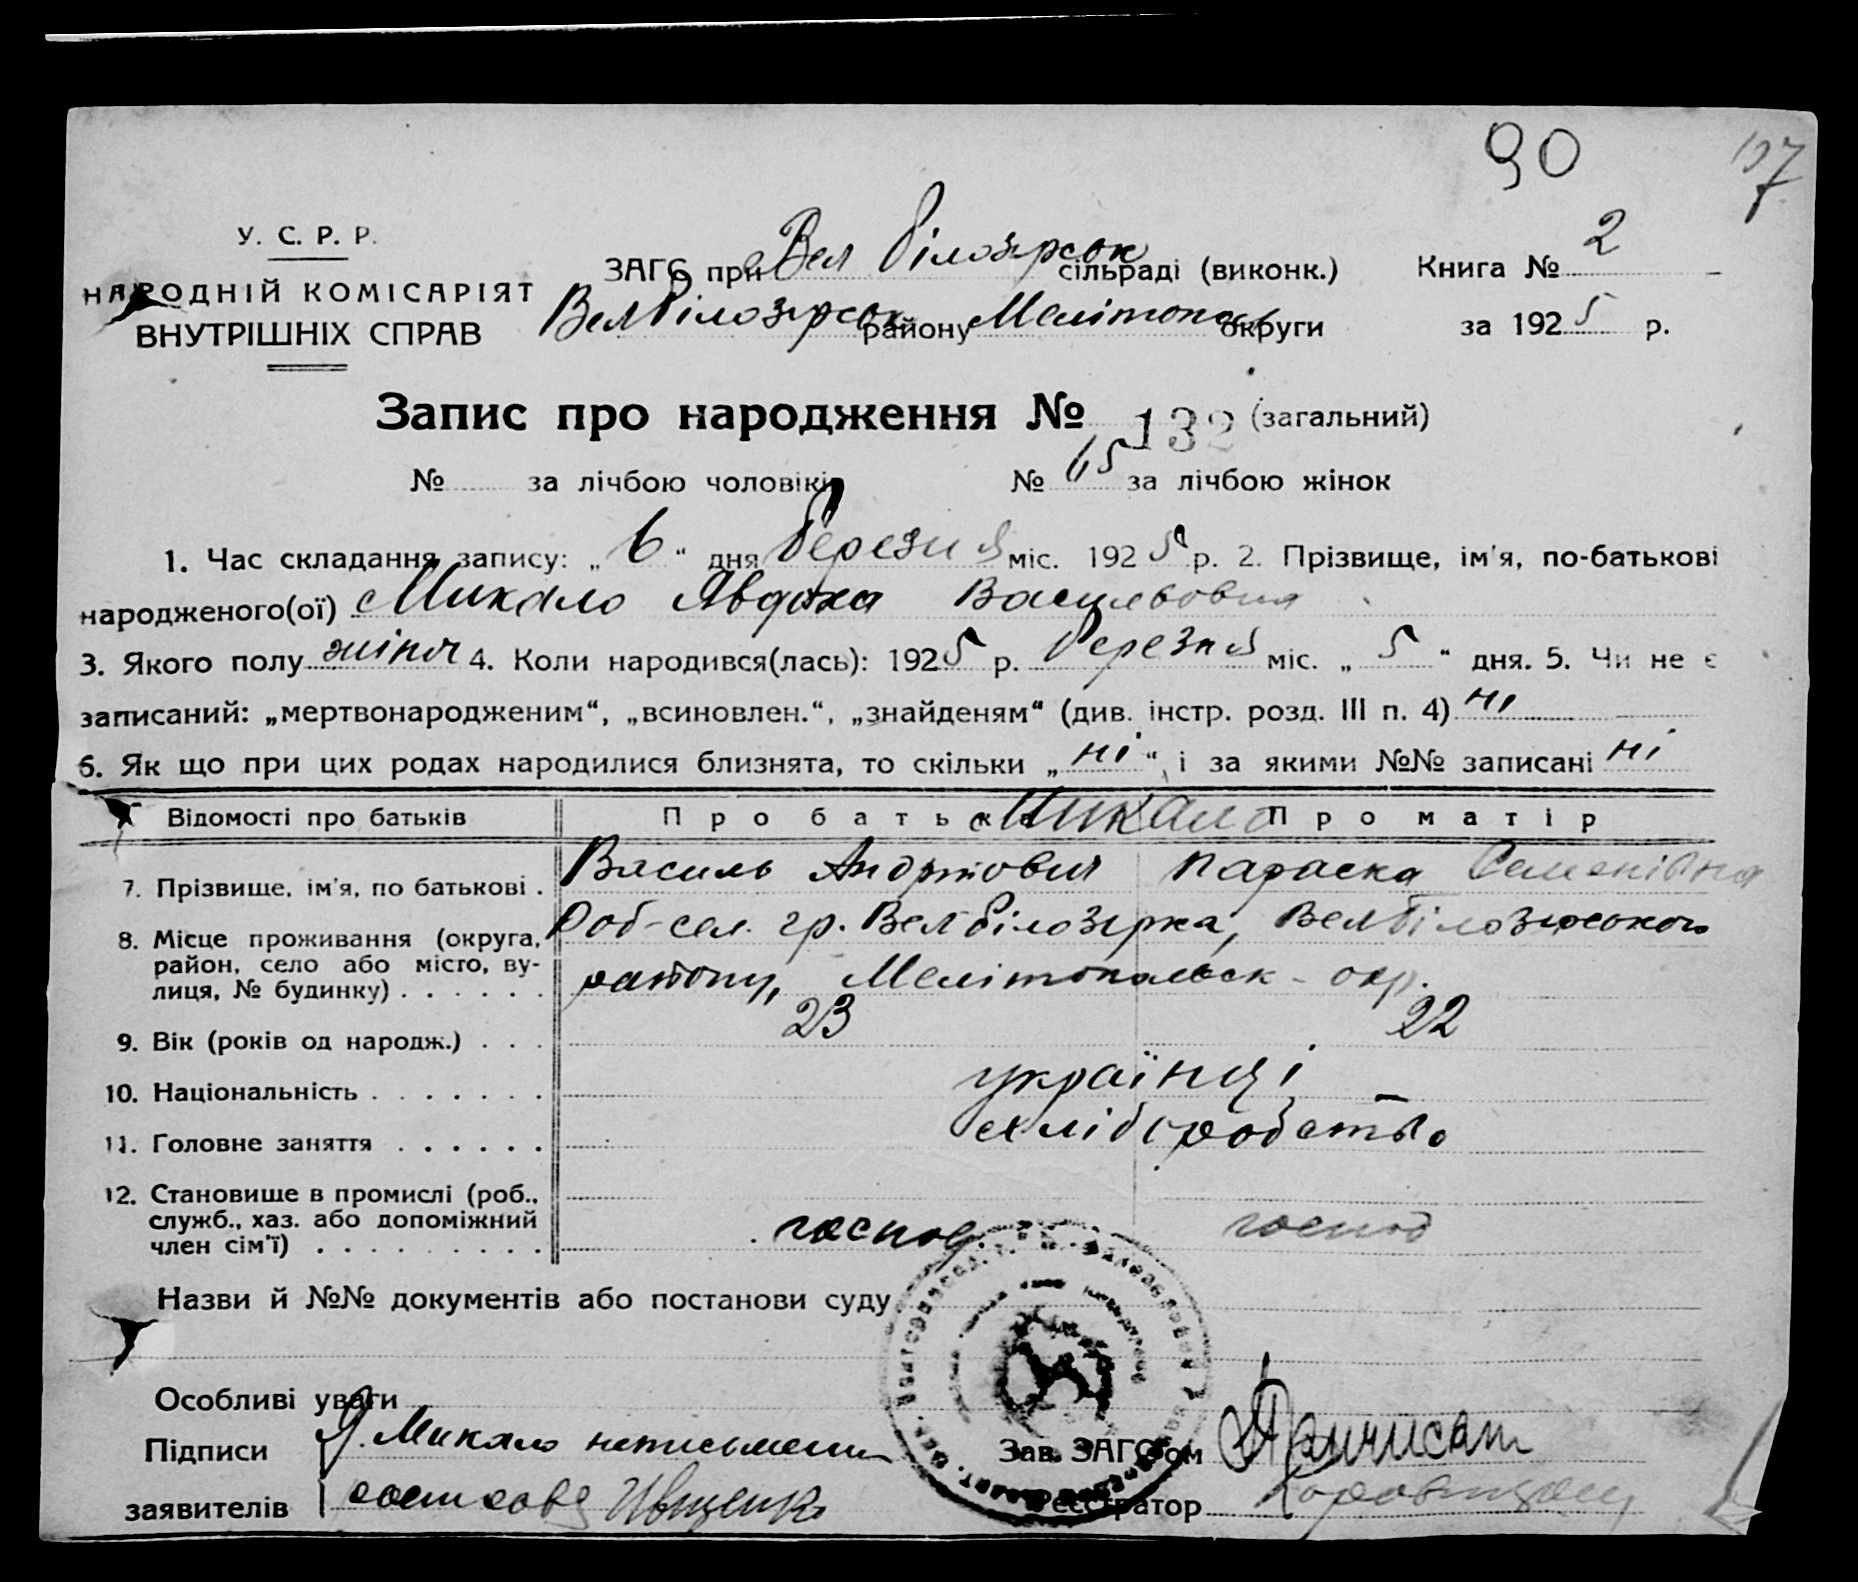 90 197
У. С. Р. Р.
НАРОДНІЙ КОМІСАРІЯТ
ВНУТРІШНІХ СПРАВ
ЗАГС при Вел Білозірськ сільраді (виконк.) Книга № 2
Вел Білозірськ району Мелітопол округи за 1925 р.
Запис про народження № 132 (загальний)
№ за лічбою чоловіків № 65 за лічбою жінок
1. Час складання запису: „ 6 “ дня березня міс. 1925 р. 2. Прізвище, ім'я, по-батькові
народженого(ої) Микало Явдоха Васильовна
3. Якого полу жіноч 4. Коли народився(лась): 1925 р. березня міс. „ 5 “ дня. 5. Чи не є
записаний: „мертвонародженим“, „всиновлен.“, „знайденям“ (див. інстр. розд. III п. 4) ні
6. Як що при цих родах народилися близнята, то скільки „ ні “ і за якими №№ записані ні
Відомості про батьків Про батька Микало Про матір
7. Прізвище, ім'я, по батькові . Василь Андрійович Параска Семенівна
8. Місце проживання (округа, район, село або місто, вулиця, № будинку) . . . . . . роб-сел. гр. Вел Білозірка, Вел Білозірського
району, Мелітопольск - окр.
9. Вік (років од народж.) . . . 23 22
10. Національність . . . . . . . українці
11. Головне заняття . . . . . . хліборобство
12. Становище в промислі (роб., служб., хаз. або допоміжний член сім'ї) . . . . . . . . . господ. господ
Назви й №№ документів або постанови суду
Особливі уваги
Підписи Микало неписьмени
заявителів Іващенко
Зав. ЗАГС'ом
Реєстратор